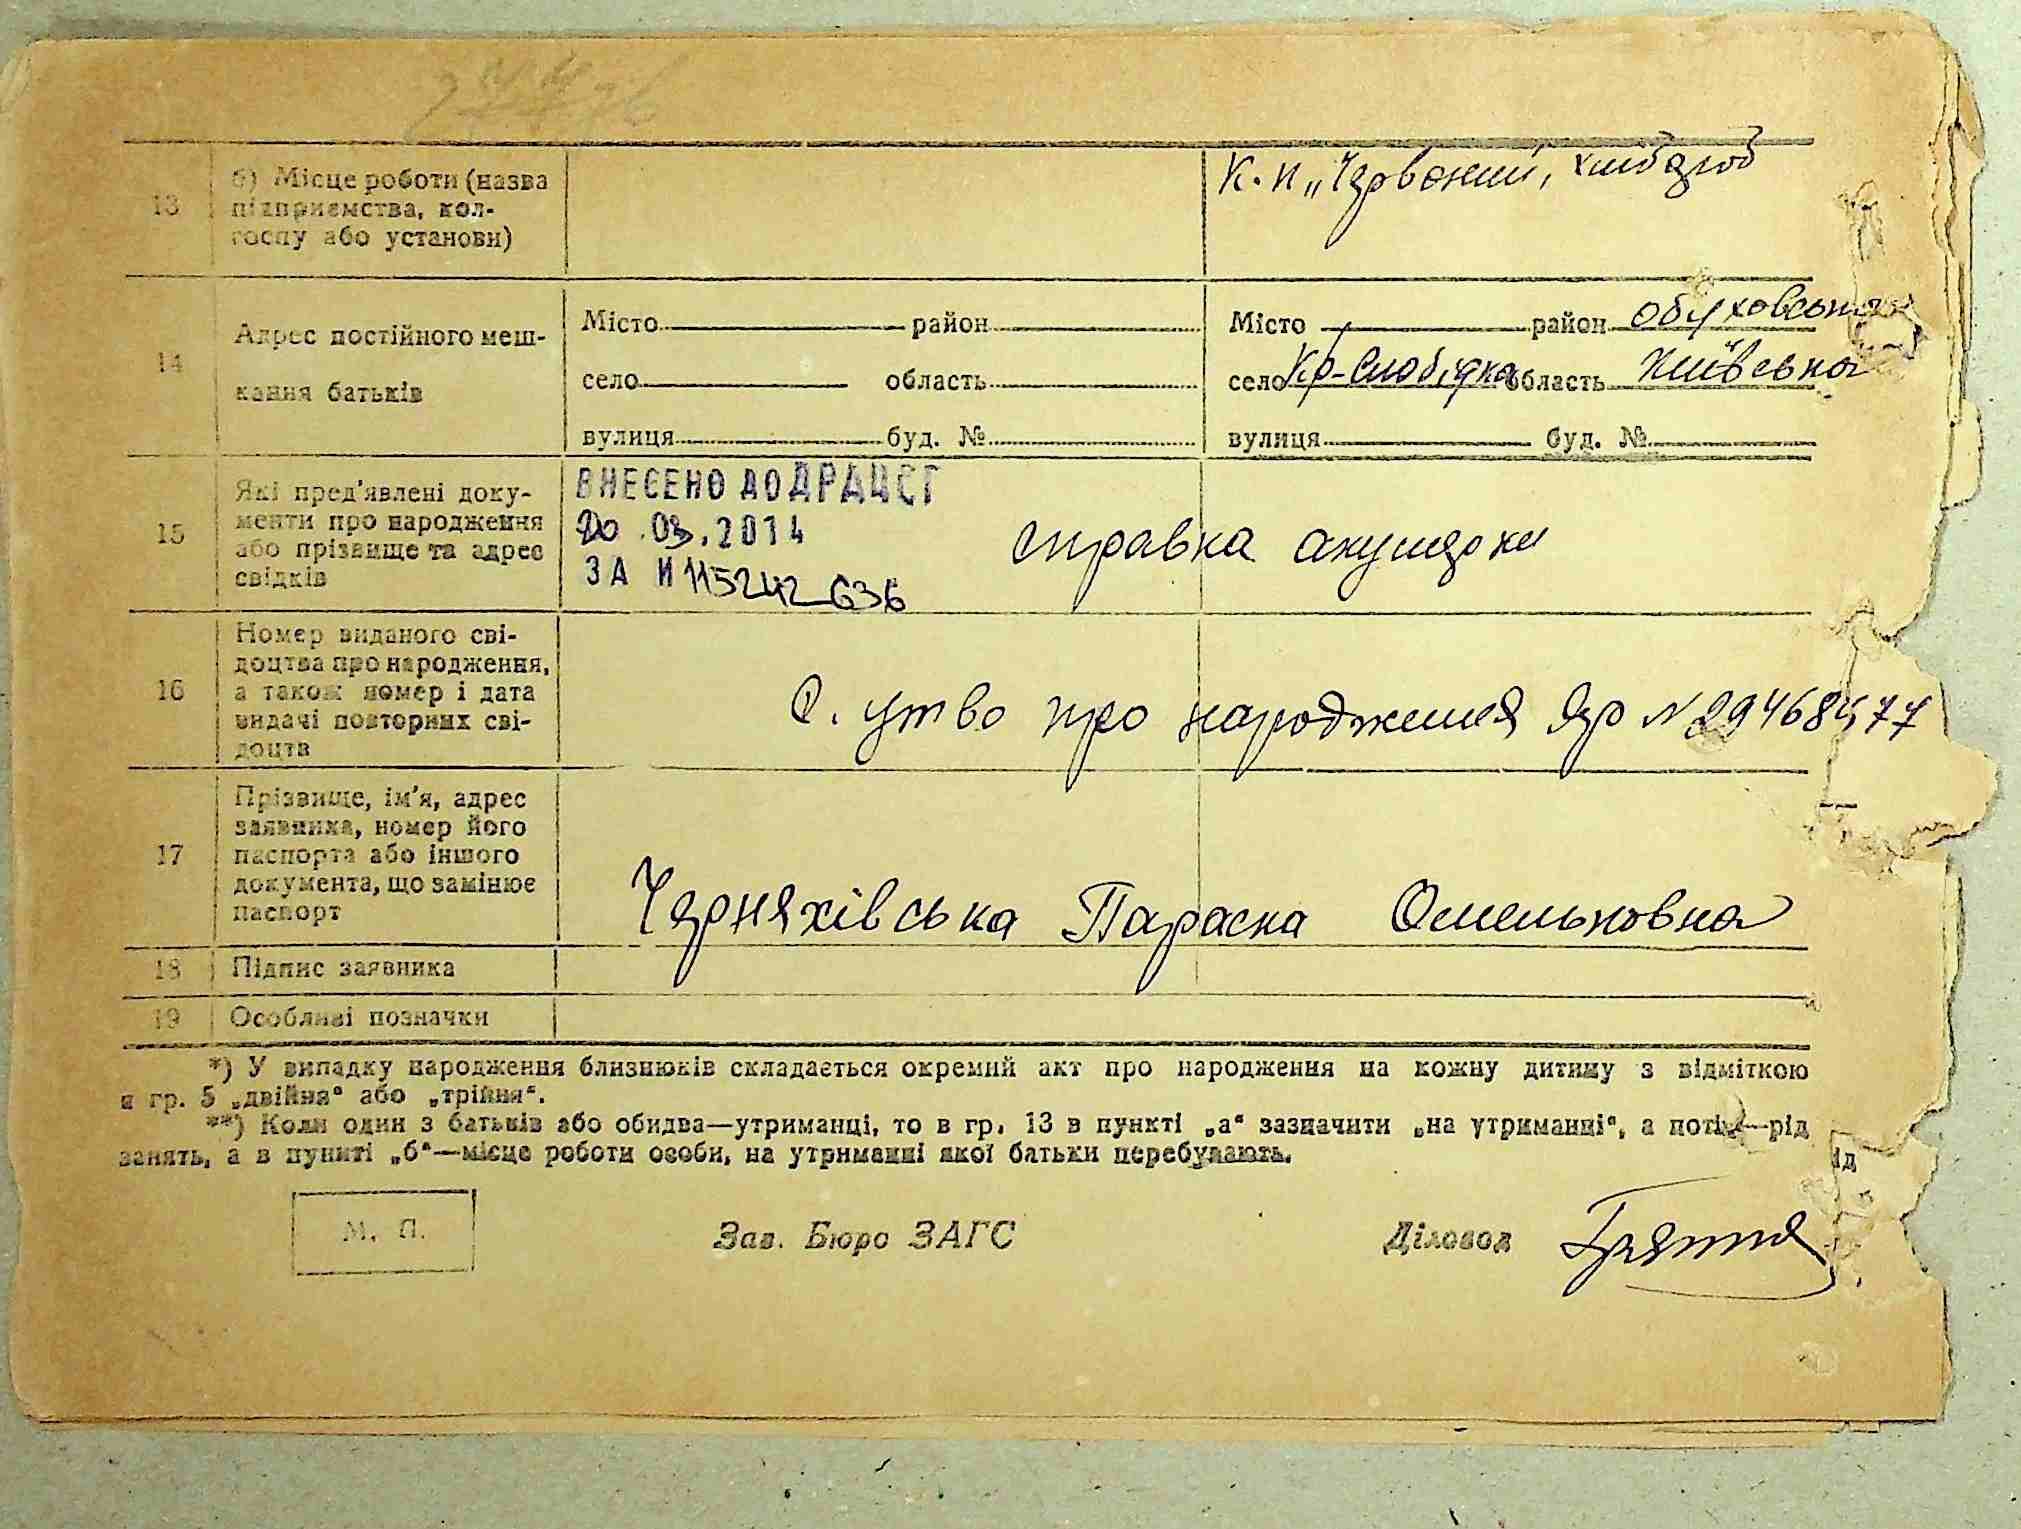 13 б) Місце роботи (назва
підприємства, кол-
госпу або установи)
К. и „Червоний, хлібороб
14 Адрес постійного меш-
кання батьків
Місто район
село область
вулиця буд. №
Місто район Обуховський
село Кр-Слобідка область Київська
вулиця буд. №
15 Які пред'явлені доку-
менти про народження
або прізвище та адрес
свідків
ВНЕСЕНО ДО ДРАЦСГ
20.03.2014
ЗА N 115242636
справка акушерки
16 Номер виданого сві-
доцтва про народження,
а також номер і дата
видачі повторних сві-
доцтв
про народження Яр N 29468577
17 Прізвище, ім'я, адрес
заявника, номер його
паспорта або іншого
документа, що замінює
паспорт
Черняхівська Параска Омельковна
18 Підпис заявника
19 Особливі позначки
*) У випадку народження близнюків складається окремий акт про народження на кожну дитину з відміткою
в гр. 5 „двійня“ або „трійня“.
**) Коли один з батьків або обидва—утриманці, то в гр. 13 в пункті „а“ зазначити „на утриманні“, а потім—рід
занять, а в пункті „б“—місце роботи особи, на утриманні якої батьки перебувають.
М. П.
Зав. Бюро ЗАГС
Діловод